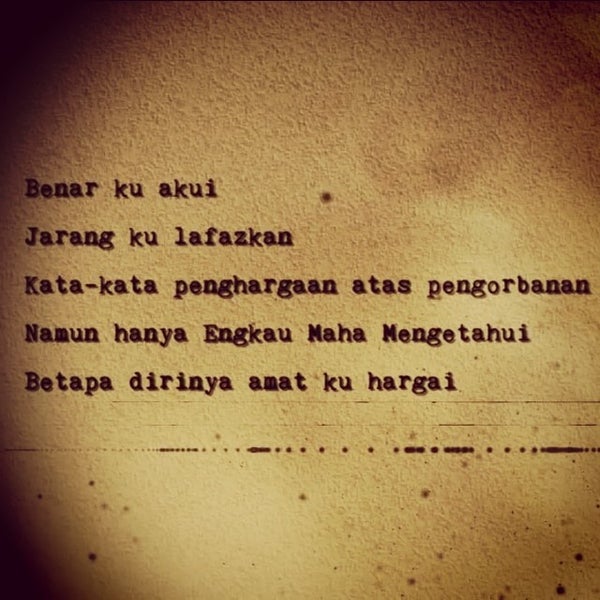 Benar ku akui
Jarang ku lafazkan
Kata-kata penghargaan atas pengorbanan
Namun hanya Engkau Maha Mengetahui
Betapa dirinya amat ku hargai